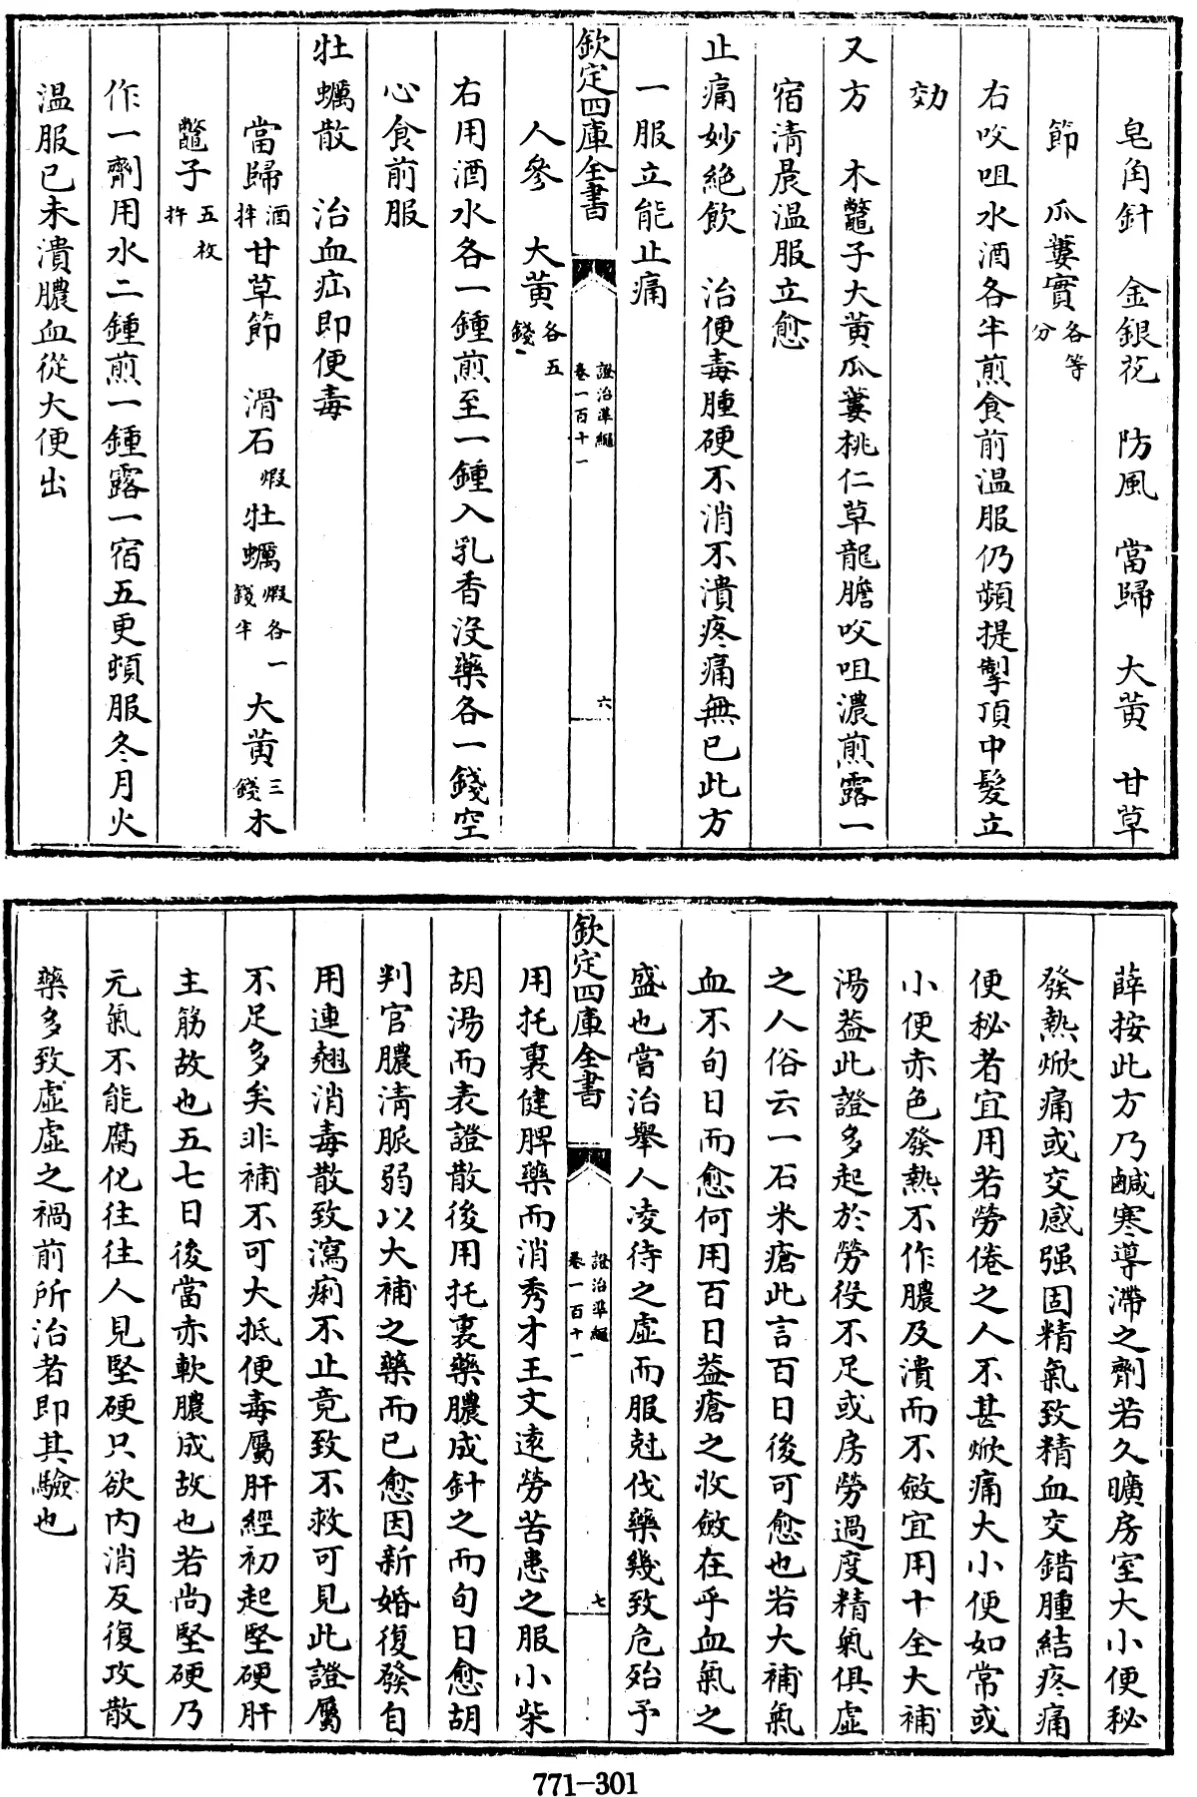 皂角針　金銀花　防風　當歸　大黄　甘草
節　瓜蔞實各等分
右㕮咀水酒各半煎食前温服仍頻提掣頂中髮立
効
又方　木鼈子大黄瓜蔞桃仁草龍膽㕮咀濃煎露一
宿清晨温服立愈
止痛妙絶飲　治便毒腫硬不消不潰疼痛無已此方
一服立能止痛
欽定四庫全書　證治準繩卷一百十一　六
人參　大黄各五錢
右用酒水各一鍾煎至一鍾入乳香没藥各一錢空
心食前服
牡蠣散　治血疝即便毒
當歸酒拌甘草節　滑石煆牡蠣煆各一錢半　大黄三錢木
鼈子五枚杵
作一劑用水二鍾煎一鍾露一宿五更頓服冬月火
温服已未潰膿血從大便出
薛按此方乃鹹寒導滯之劑若久曠房室大小便秘
發熱焮痛或交感强固精氣致精血交錯腫結疼痛
便秘者宜用若勞倦之人不甚焮痛大小便如常或
小便赤色發熱不作膿及潰而不斂宜用十全大補
湯葢此證多起於勞役不足或房勞過度精氣俱虚
之人俗云一石米瘡此言百日後可愈也若大補氣
血不旬日而愈何用百日葢瘡之收斂在乎血氣之
盛也嘗治舉人凌待之虚而服尅伐藥幾致危殆予
欽定四庫全書　證治準繩卷一百十一　七
用托裏健脾藥而消秀才王文遠勞苦患之服小柴
胡湯而表證散後用托裏藥膿成針之而旬日愈胡
判官膿清脈弱以大補之藥而已愈因新婚復發自
用連翹消毒散致瀉痢不止竟致不救可見此證屬
不足多矣非補不可大抵便毒屬肝經初起堅硬肝
主筋故也五七日後當赤軟膿成故也若尚堅硬乃
元氣不能腐化往往人見堅硬只欲内消反復攻散
藥多致虚虚之禍前所治者即其驗也
771-301